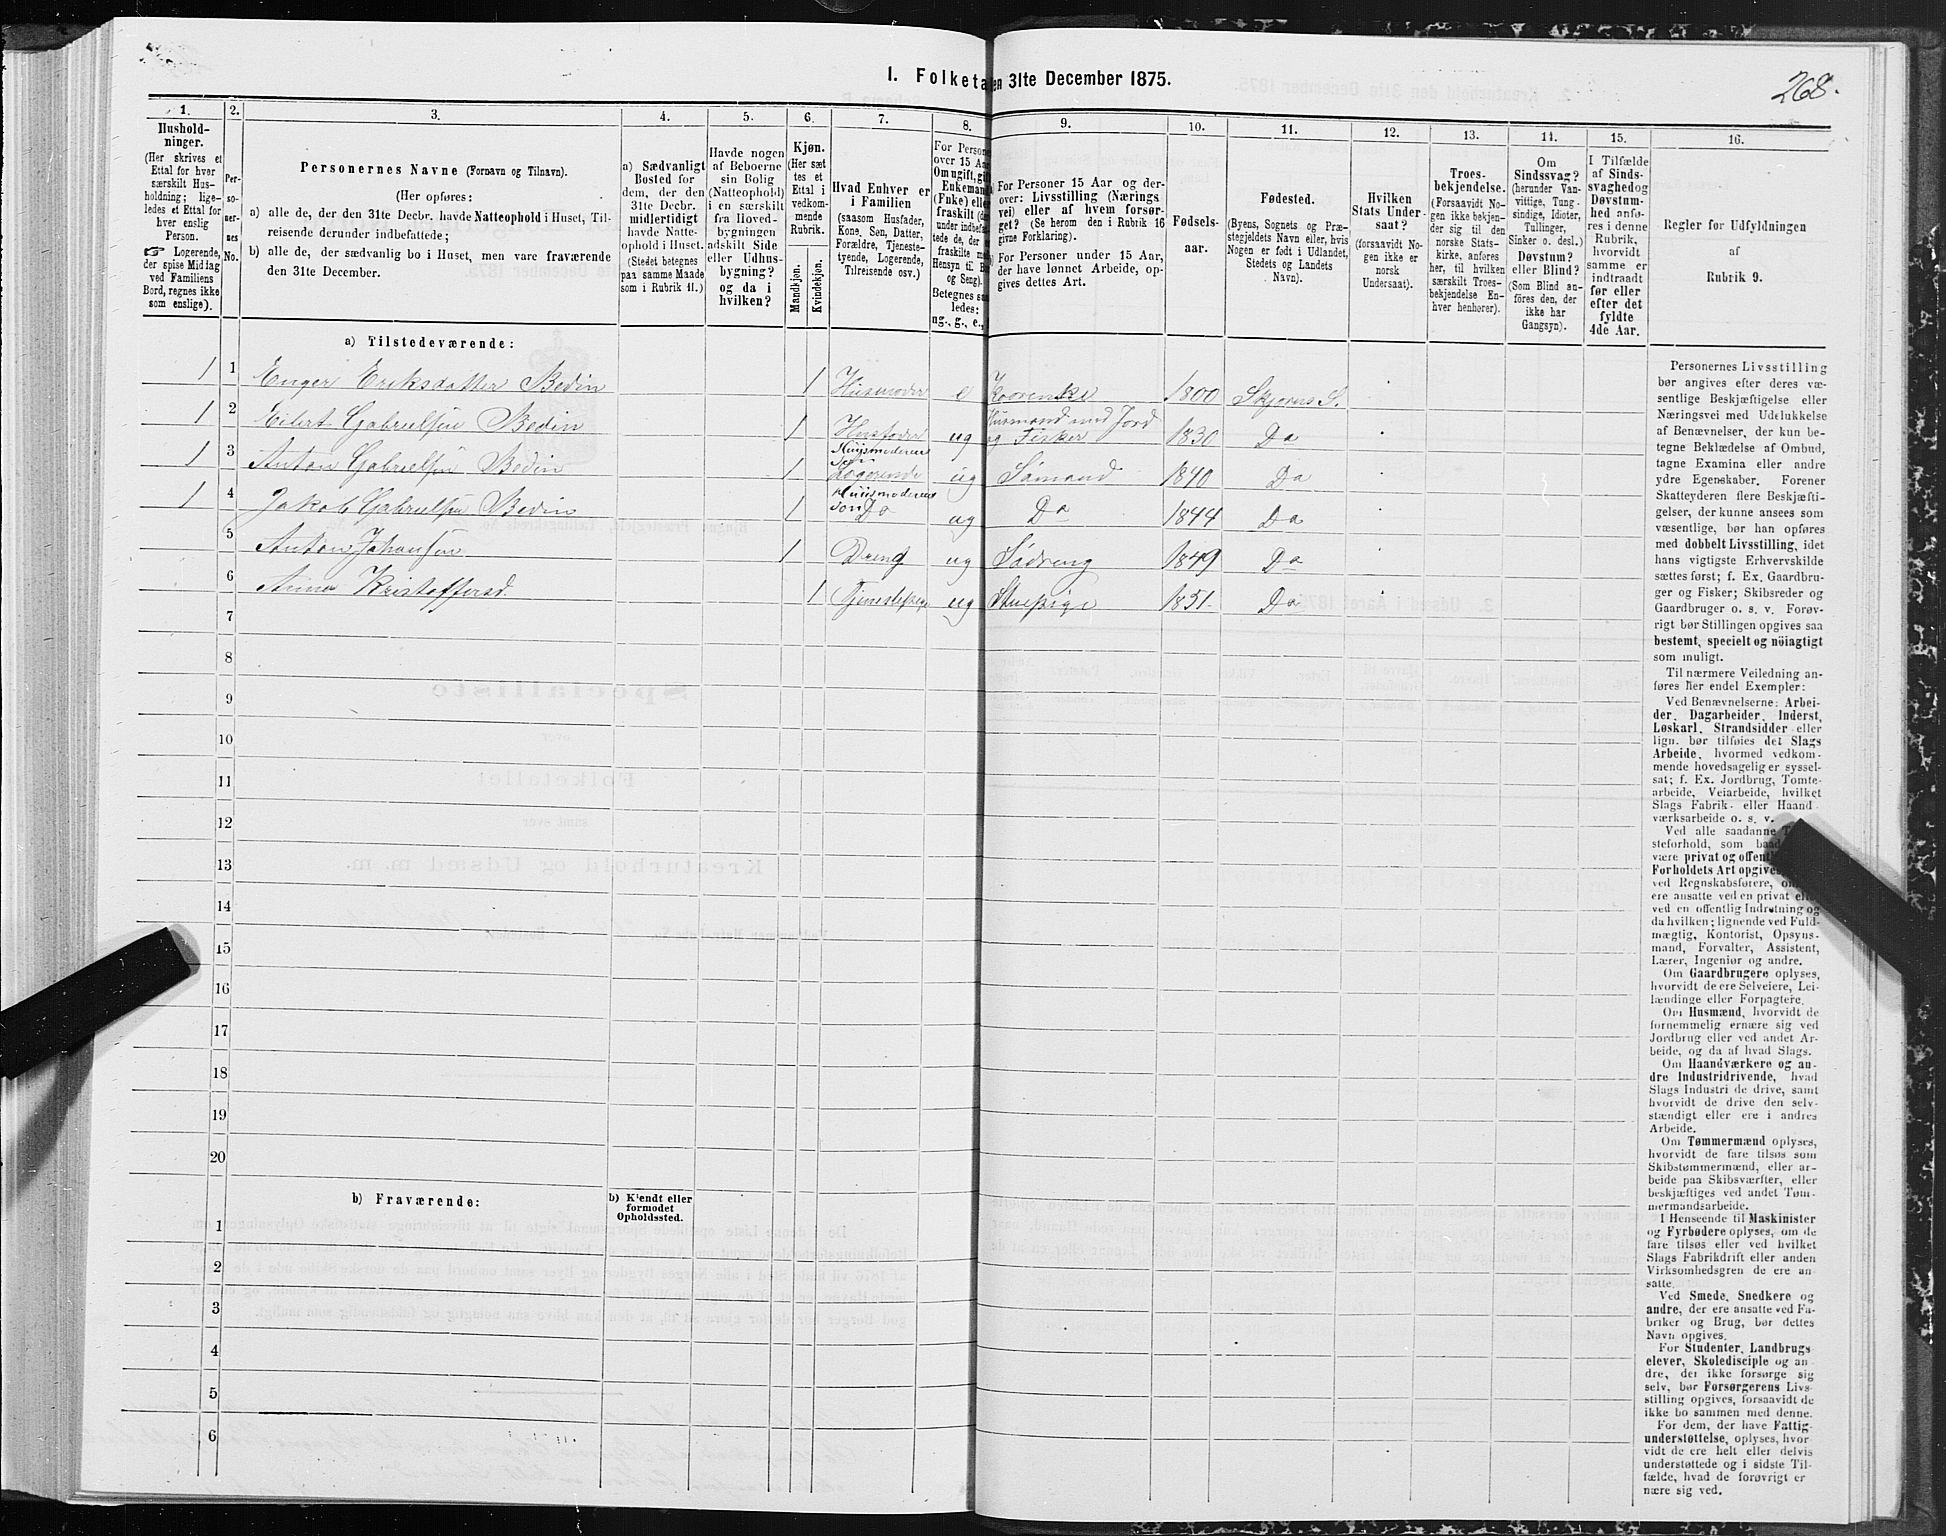 I. Folketa en 31te December 1875.
268.
1.
Hushold-
ninger.
(Her skrives et
Ettal for hver
særskilt Hus-
holdning; lige-
ledes et Ettal for
hver enslig
Person.
Logerende,
der spise Middag
ved Familiens
Bord, regnes ikke
som enslige).
2.
Per-
so-
ner-
nes
No.
3.
Personernes Navne (Fornavn og Tilnavn).
(Her opføres:
a) alle de, der den 31te Decbr. havde Natteophold i Huset, Til-
reisende derunder indbefattede;
b) alle de, der sædvanlig bo i Huset, men vare fraværende
den 31te December.
4.
a) Sædvanligt
Bosted for
dem, der den
31te Decbr.
midlertidigt
havde Natte-
ophold i Huset.
(Stedet betegnes
paa samme Maade
som i Rubrik 11.)
5.
Havde nogen
af Beboerne
sin Bolig
(Natteophold)
i en særskilt
fra Hoved-
bygningen
adskilt Side
eller Udhus-
bygning?
og da i
hvilken?
6.
Kjøn.
(Her sæt
tes et
Ettal i
vedkom-
mende
Rubrik.
Mandkjøn.
Kvindekjøn.
7.
Hvad Enhver er
i Familien
(saasom Husfader,
Kone, Søn, Datter,
Forældre, Tjeneste-
tyende, Logerende,
Tilreisende osv.)
8.
For Person
over 15 Aa
Om ugift, gif
Enkemand
(Fnke) elle
fraskilt (de
under indbefat
tede de, der
fraskilte m
Hensyn til B
og Seng).
Betegnes s
ledes:
ug., g., e.,
9.
For Personer 15 Aar og der-
over: Livsstilling (Nærings
vei) eller af hvem forsør-
get? (Se herom den i Rubrik 16
givne Forklaring).
For Personer under 15 Aar,
der have lønnet Arbeide, op-
gives dettes Art.
10.
Fødsels-
aar.
11.
Fødested.
(Byens, Sognets og Præ-
stegjeldets Navn eller, hvis
Nogen er født i Udlandet,
Stedets og Landets
Navn).
12.
Hvilken
Stats Under-
saat?
(forsaavidt No-
gen ikke er
norsk
Undersaat).
13.
Troes-
bekjendelse.
(Forsaavidt No-
gen ikke bekjen-
der sig til den
norske Stats-
kirke, anføres
her, til hvilken
særskilt Troes-
bekjendelse En-
hver henhører).
14.
Om
Sindssvag?
(herunder Van-
vittige, Tung-
sindige, Idioter,
Tullinger,
Sinker o. desl.)
Døvstum?
eller Blind?
(Som Blind an-
føres den, der
ikke har
Gangsyn).
15.
I Tilfælde
af Sinds-
svaghed og
Døvstum-
hed anfø-
res i denne
Rubrik,
hvorvidt
samme er
indtraadt
før eller
efter det
fyldte
4de Aar.
16.
Regler for Udfyldningen
af
Rubrik 9.
a) Tilstedeværende:
1 1 Enger Eriksdatter Bedin 1 Husmoder e 1800 Skjerns S.
1 2 Eilert Gabrielsen Bedin 1 Husfader ug Husmand med Jord og Fisker 1830 Do
1 3 Anton Gabrielsen Bedin 1 Huusmoderens Søn Logerende ug Sømand 1840 Do
1 4 Jakob Gabrielsen Bedin 1 Huusmoderens Søn Do ug Do 1844 Do
5 Anton Johansen 1 Dreng ug Sødreng 1849 Do
6 Anna Kristoffersd. 1 Tjenestepige ug Stuepige 1851. Do
7
8
9
10
11
12
13
14
15
16
17
18
19
20
b) Fraværende:
b) Kjendt eller
formodet
Opholdssted.
1
2
3
4
5
6
Personernes Livsstilling
bør angives efter deres væ-
sentlige Beskjæftigelse eller
Næringsvei med Udelukkelse
af Benævnelser, der kun be-
tegne Beklædelse af Ombud,
tagne Examina eller andre
ydre Egenskaber. Forener
Skatteyderen flere Beskjæfti-
gelser, der kunne ansees som
væsentlige, bør han opføres
med dobbelt Livsstilling, idet
hans vigtigste Erhvervskilde
sættes først; f. Ex. Gaardbru-
ger og Fisker; Skibsreder og
Gaardbruger o. s. v. Forøv-
rigt bør Stillingen opgives saa
bestemt, specielt og nöiagtigt
som muligt.
Til nærmere Veiledning an-
føres her endel Exempler:
Ved Benævnelserne: Arbei-
der, Dagarbeider, Inderst,
Løskarl, Strandsidder eller
lign. bør tilføies det Slags
Arbeide, hvormed vedkom-
mende hovedsagelig er syssel-
sat; f. Ex. Jordbrug, Tomte-
arbeide, Veiarbeide, hvilket
Slags Fabrik- eller Haand
værksarbeide o. s. v.
Ved alle saadanne
steforhold, som
være privat og offent
Forholdets Art opgives
ved Regnskabsførere,
ere ansatte ved en privat
ved en offentlig Indretning og
da hvilken; lignende ved Fuld-
mægtig, Kontorist, Opsyns-
mand, Forvalter, Assistent,
Lærer, Ingeniør og andre.
Om Gaardbrugere oplyses,
hvorvidt de ere Selveiere, Lei-
lændinge eller Forpagtere.
Om Husmænd, hvorvidt de
fornemmelig ernære sig ved
Jordbrug eller ved andet Ar-
beide, og da af hvad Slags.
Om Haandværkere og an-
dre Industridrivende, hvad
Slags Industri de drive, samt
hvorvidt de drive den selv-
stændigt eller ere i andres
Arbeide.
Om Tømmermænd oplyses,
hvorvidt de fare tilsøs som
Skibstømmermænd, eller ar-
beide paa Skibsværfter, eller
beskjæftiges ved andet Tøm-
mermandsarbeide.
I Henseende til Maskinister
og Fyrbødere oplyses, om de
fare tilsøs eller ved hvilket
Slags Fabrikdrift eller anden
Virksomhedsgren de ere an-
satte.
Ved Smede, Snedkere og
andre, der ere ansatte ved Fa-
briker og Brug, bør dettes
Navn opgives.
For Studenter, Landbrugs
elever, Skoledisciple og an-
dre, der ikke forsørge sig
selv, bør Forsørgerens Livs-
stilling opgives, forsaavidt de
ikke bo sammen med denne.
For dem, der have Fattig-
understøttelse, oplyses, hvor-
vidt de ere helt eller delvis
understøttede og i sidste Til-
fælde, hvad de forøvrigt er
nære sig ved.